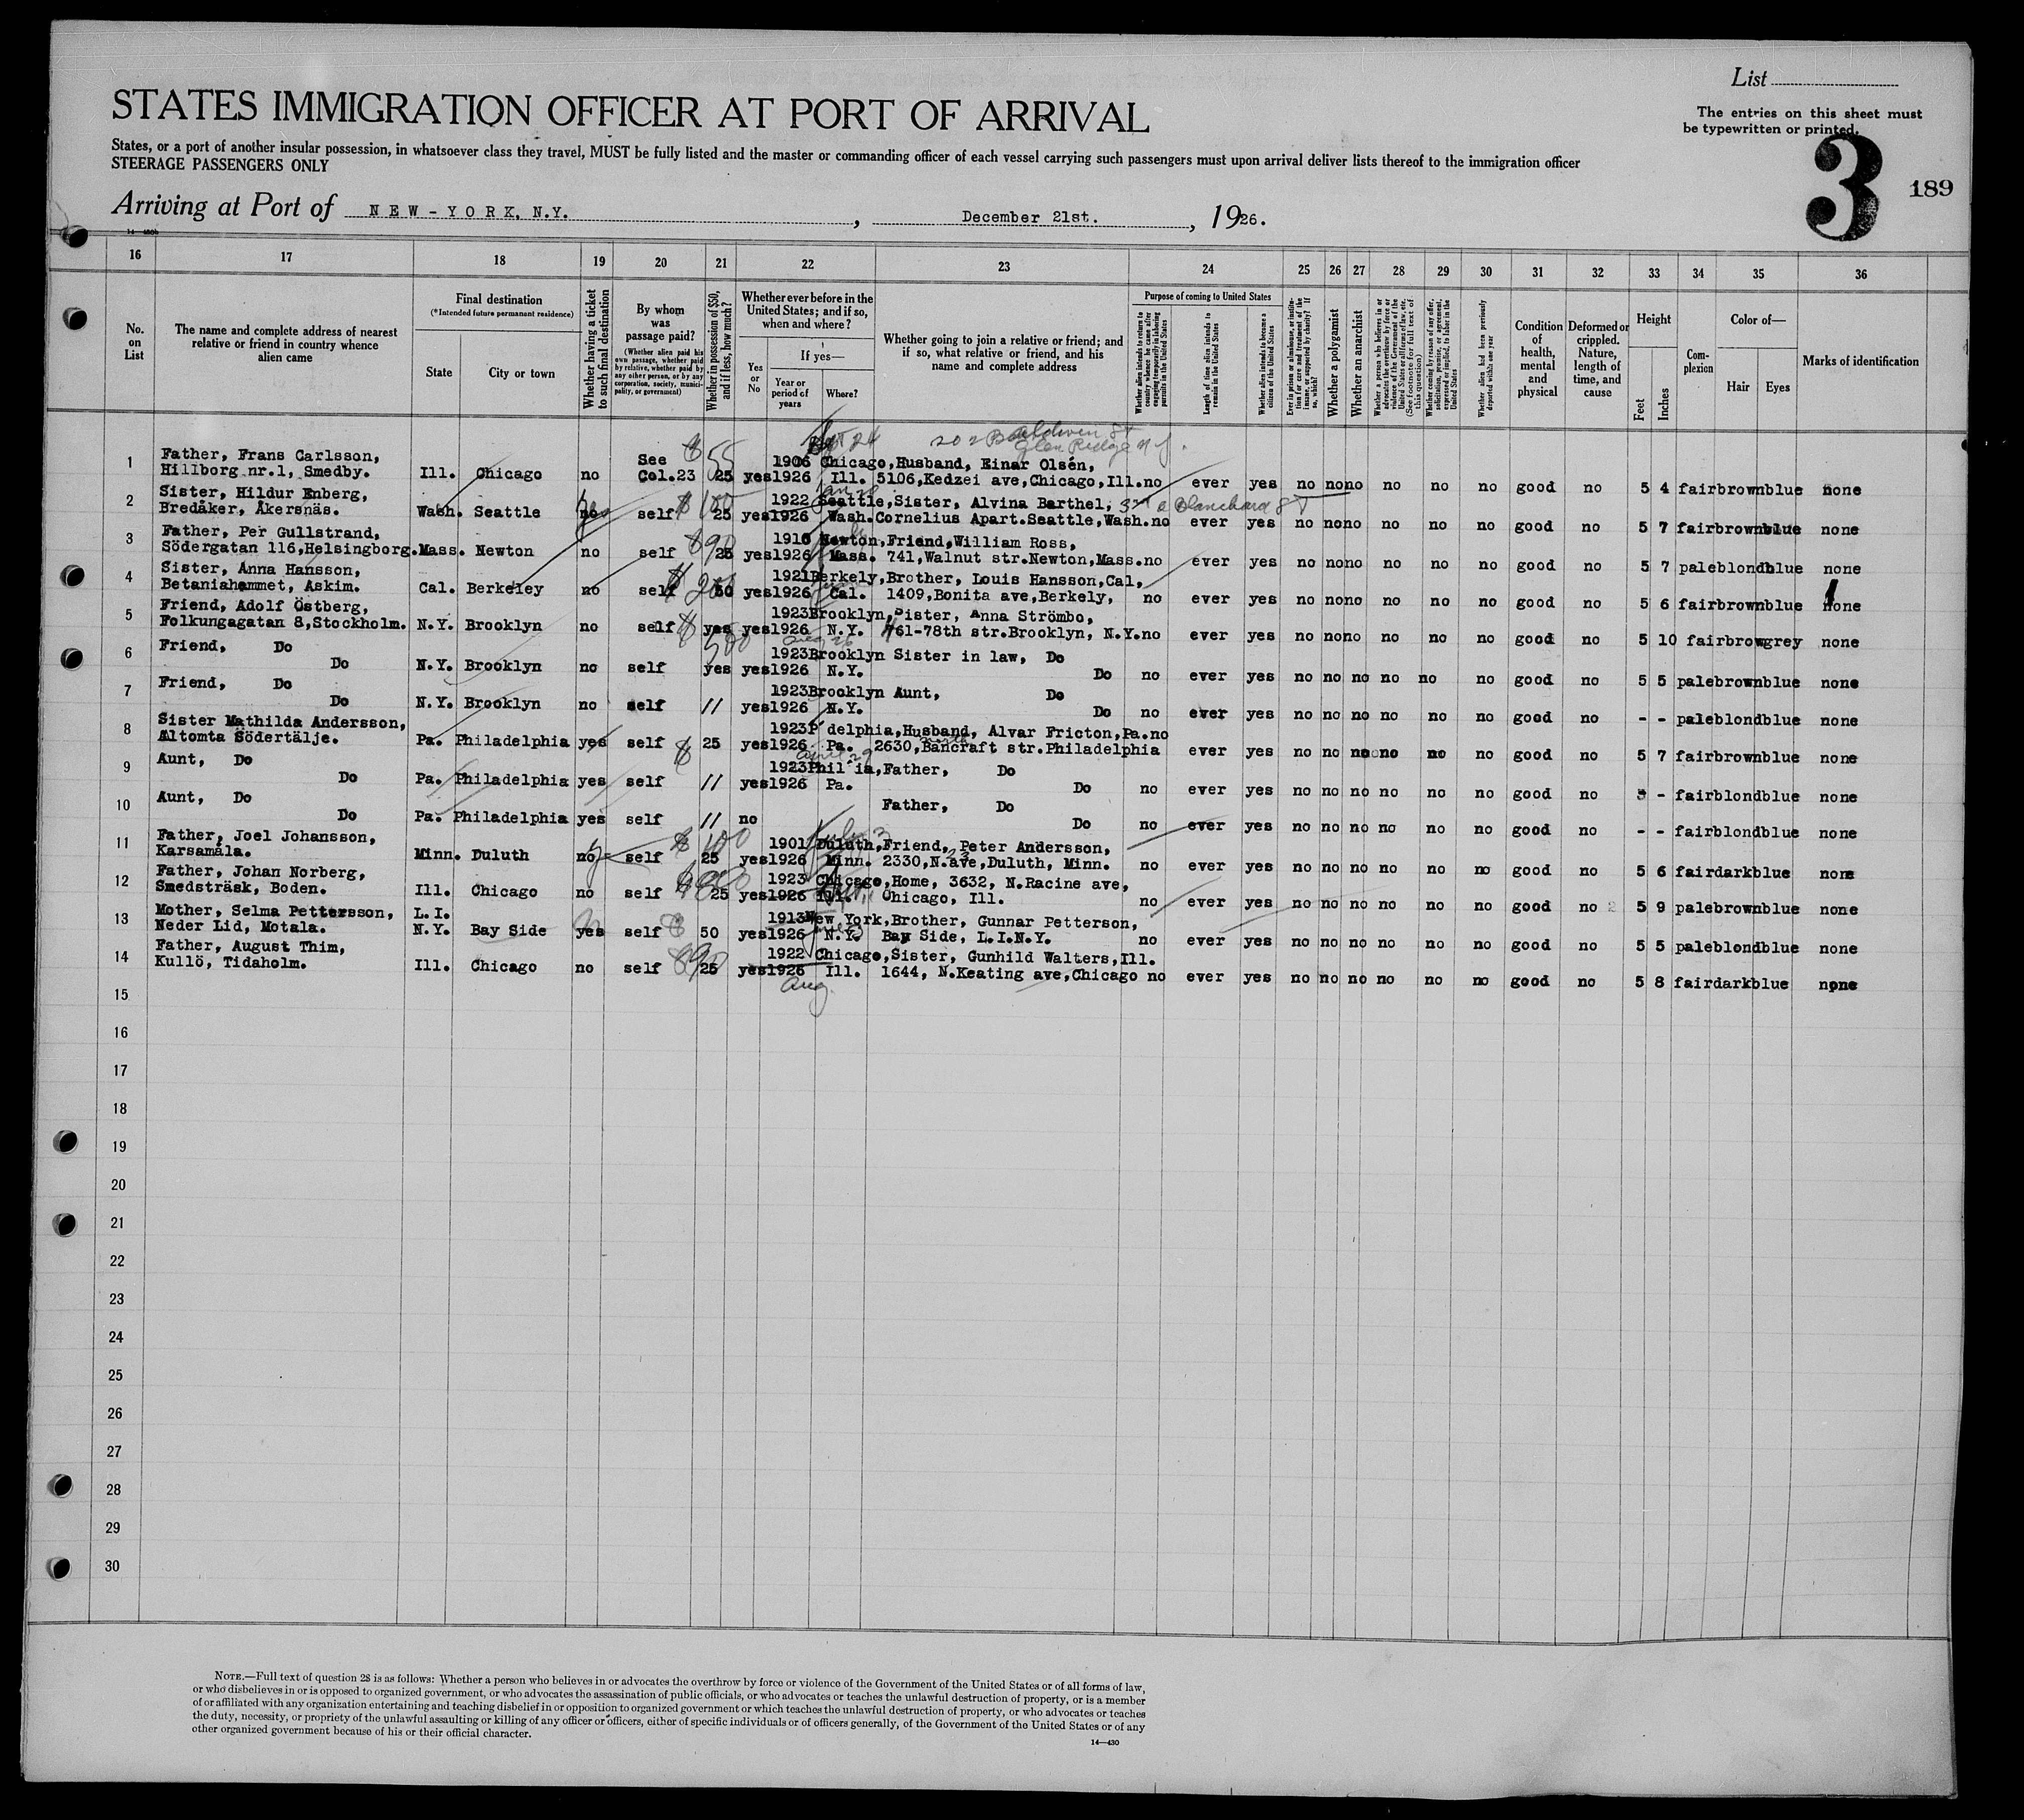 List
STATES IMMIGRATION OFFICER AT PORT OF ARRIVAL
The entries on this sheet must
be typewritten or printed.
States, or a port of another insular possession, in whatsoever class they travel, MUST be fully listed and the master or commanding officer of each vessel carrying such passengers must upon arrival deliver lists thereof to the immigration officer
STEERAGE PASSENGERS ONLY
3
189
Arriving at Port of NEW-YORK, N.Y. , December 21st. , 1926.
16 17 18 19 20 21 22 23 24 25 26 27 28 29 30 31 32 33 34 35 36
No. on List
The name and complete address of nearest
relative or friend in country whence
alien came
Final destination
(*Intended future permanent residence)
State
City or town
Whether having a ticket
to such final destination
By whom
was
passage paid?
(Whether alien paid his
own passage, whether paid
by relative, whether paid by
any other person, or by any
corporation, society, munici-
pality, or government)
Whether in possession of $50,
and if less, how much?
Whether ever before in the
United States; and if so,
when and where?
Yes
or
No
If yes—
Year or
period of
years
Where?
Whether going to join a relative or friend; and
if so, what relative or friend, and his
name and complete address
Purpose of coming to United States
Whether alien intends to return to
country whence he came after
engaging temporarily in laboring
pursuits in the United States
Length of time alien intends to
remain in the United States
Whether alien intends to become a
citizen of the United States
Ever in prison or almshouse, or institu-
tion for care and treatment of the
insane, or supported by charity? If
so, which?
Whether a polygamist
Whether an anarchist
Whether a person who believes in or
advocates the overthrow by force or
violence of the Government of the
United States or all forms of law, etc.
(See footnote for full text of
this question)
Whether coming by reason of any offer,
solicitation, promise, or agreement,
expressed or implied, to labor in the
United States
Whether alien had been previously
deported within one year
Condition
of
health,
mental
and
physical
Deformed or
crippled.
Nature,
length of
time, and
cause
Height
Feet
Inches
Com-
plexion
Color of—
Hair
Eyes
Marks of identification
24 202 Baldwin St
Glen Ridge N J.
1 Father, Frans Carlsson, See $55 1906 Chicago, Husband, Einar Olsén,
Hillborg nr.1, Smedby. Ill. Chicago no Col.23 25 yes 1926 Ill. 5106,Kedzei ave,Chicago,Ill. no ever yes no no no no no no good no 5 4 fair brown blue none
2 Sister, Hildur Enberg, $100 1922 Seattle, Sister, Alvina Barthel, 3rd & Blanchard St
Bredåker, Åkersnäs. Wash. Seattle self 25 yes 1926 Wash. Cornelius Apart.Seattle,Wash. no ever yes no no no no no no good no 5 7 fair brown blue none
3 Father, Per Gullstrand, $90 1910 Newton, Friend, William Ross,
Södergatan 116,Helsingborg. Mass. Newton no self 25 yes 1926 Mass. 741, Walnut str.Newton,Mass. no ever yes no no no no no no good no 5 7 pale blond blue none
4 Sister, Anna Hansson, $200 1921 Berkely, Brother, Louis Hansson,Cal,
Betaniahemmet, Askim. Cal. Berkeley no self 50 yes 1926 Cal. 1409,Bonita ave,Berkely, no ever yes no no no no no no good no 5 6 fair brown blue none
5 Friend, Adolf Östberg, 1923 Brooklyn, Sister, Anna Strömbo,
Folkungagatan 8,Stockholm. N.Y. Brooklyn no self $ yes yes 1926 N.Y. 761-78th str.Brooklyn, N.Y. no ever yes no no no no no no good no 5 10 fair brow grey none
500
6 Friend, Do 1923 Brooklyn Sister in law, Do
Do N.Y. Brooklyn no self yes yes 1926 N.Y. Do no ever yes no no no no no no good no 5 5 pale brown blue none
7 Friend, Do 1923 Brooklyn Aunt, Do
Do N.Y. Brooklyn no self " yes 1926 N.Y. Do no ever yes no no no no no no good no - - pale blond blue none
8 Sister Mathilda Andersson, 1923 P' delphia, Husband, Alvar Fricton,Pa. no
Altomta Södertälje. Pa. Philadelphia yes self $ 25 yes 1926 Pa. 2630, North Bancraft str.Philadelphia ever yes no no no no no no good no 5 7 fair brown blue none
9 Aunt, Do 1923 Phil'ia, Father, Do
Do Pa. Philadelphia yes self " yes 1926 Pa. Do no ever yes no no no no no no good no - fair blond blue none
10 Aunt, Do Father, Do
Do Pa. Philadelphia yes self " no Do no ever yes no no no no no no good no - - fair blond blue none
11 Father, Joel Johansson, $100 1901 Duluth, Friend, Peter Andersson,
Karsamåla. Minn. Duluth no self 25 yes 1926 Minn. 2330,N.ave,Duluth, Minn. no ever yes no no no no no no good no 5 6 fair dark blue none
12 Father, Johan Norberg, 1923 Chicago, Home, 3632, N.Racine ave,
Smedsträsk, Boden. Ill. Chicago no self 25 yes 1926 Ill. Chicago, Ill. no ever yes no no no no no no good no 5 9 pale brown blue none
13 Mother, Selma Pettersson, L.I. 1913 New York, Brother, Gunnar Petterson,
Neder Lid, Motala. N.Y. Bay Side yes self $ 50 yes 1926 N.Y. Bay Side, L.I.N.Y. no ever yes no no no no no no good no 5 5 pale blond blue none
14 Father, August Thim, $90 1922 Chicago, Sister, Gunhild Walters,Ill.
Kullö, Tidaholm. Ill. Chicago no self 25 yes 1926 Ill. 1644, N.Keating ave,Chicago no ever yes no no no no no no good no 5 8 fair dark blue none
Aug
15
16
17
18
19
20
21
22
23
24
25
26
27
28
29
30
NOTE.—Full text of question 28 is as follows: Whether a person who believes in or advocates the overthrow by force or violence of the Government of the United States or of all forms of law,
or who disbelieves in or is opposed to organized government, or who advocates the assassination of public officials, or who advocates or teaches the unlawful destruction of property, or is a member
of or affiliated with any organization entertaining and teaching disbelief in or opposition to organized government or which teaches the unlawful destruction of property, or who advocates or teaches
the duty, necessity, or propriety of the unlawful assaulting or killing of any officer or officers, either of specific individuals or of officers generally, of the Government of the United States or of any
other organized government because of his or their official character.
14—430